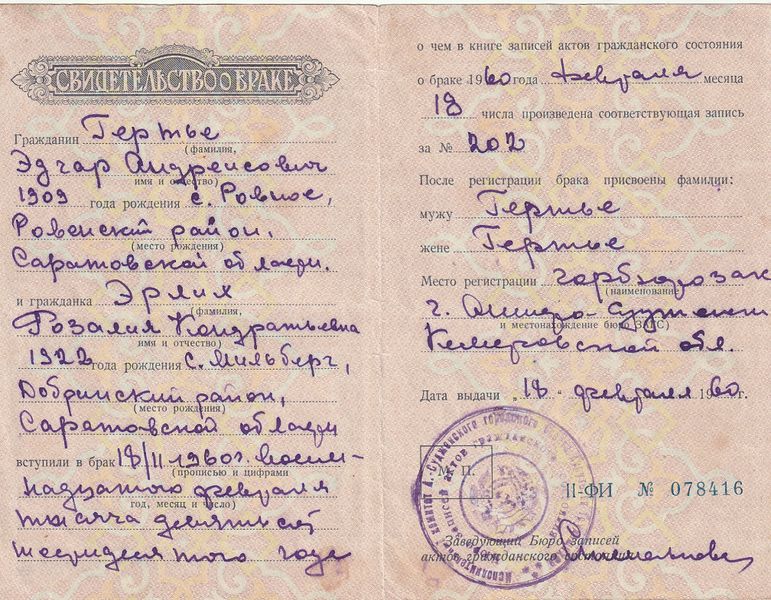 СВИДЕТЕЛЬСТВО О БРАКЕ
Гражданин Гертье
(фамилия,
Эдгар Андреисович
имя и отчество)
1909 года рождения с. Ровное,
Ровенский район,
(место рождения)
Саратовской области.
и гражданка Эрлих
(фамилия,
Розалия Кондратьевна
имя и отчество)
1922 года рождения с. Мильберг,
Добринский район,
(место рождения)
Саратовской области
вступили в брак 18/II-1960г. восем-
(прописью и цифрами
надцатого февраля
год, месяц и число)
тысяча девятьсот
шестидесятого года
о чем в книге записей актов гражданского состояния
о браке 1960 года февраля месяца
18 числа произведена соответствующая запись
за № 202
После регистрации брака присвоены фамилии:
мужу Гертье
жене Гертье
Место регистрации горбюрозаг
(наименование
г. Анжеро-Судженск
и местонахождение бюро ЗАГС)
Кемеровской обл.
Дата выдачи „18“ февраля 1960 г.
М. П.
II-ФИ № 078416
Заведующий Бюро записей
актов гражданского состояния